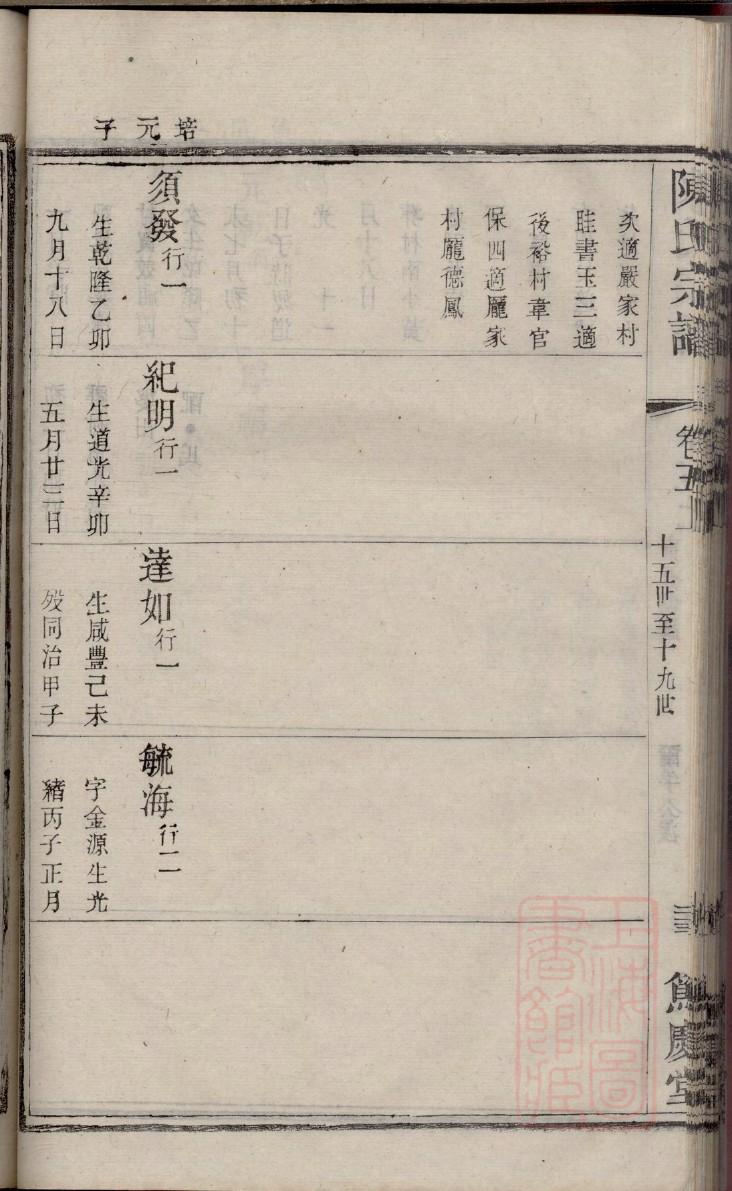 陳氏宗譜
卷五上
十五世至十九世
餘慶堂
次適嚴家村
眭書玉三適
後裕村韋官
保四適龐家
村龐德鳳
培元子
須發行一
生乾隆乙卯
九月十八日
紀明行一
生道光辛卯
五月廿三日
達如行一
生咸豐己未
歿同治甲子
毓海行二
字金源生光
緒丙子正月
上海圖
書館藏